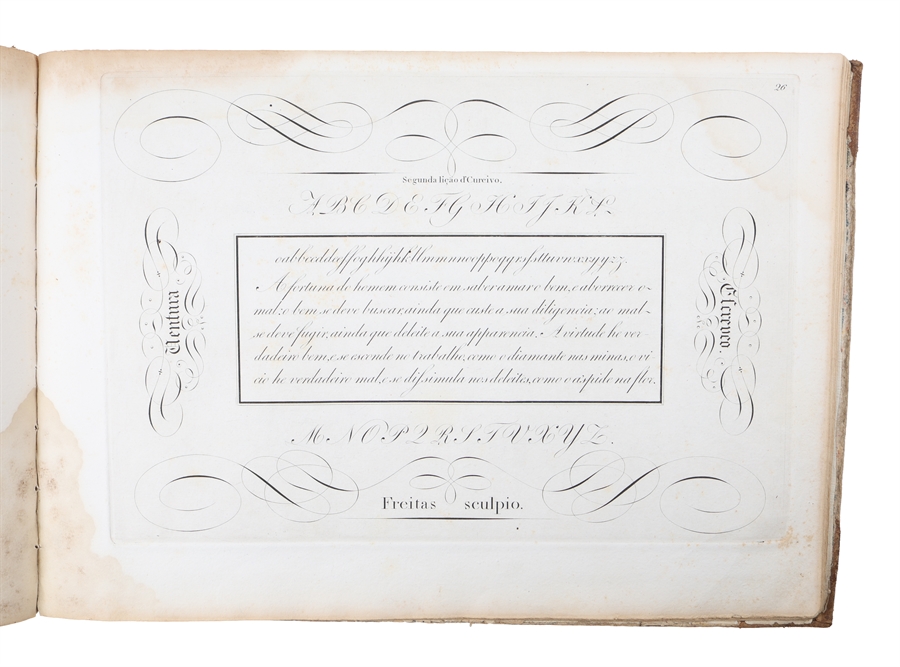 26
Segunda lição d'Curcivo.
A B C D E F G H I J K L
Ventura
A fortuna do homem consiste em saber amar o bem, e aborrecer o
mal; o bem se deve buscar, ainda que custe a sua diligencia; ao mal
se deve fugir, ainda que deleite a sua apparencia. A virtude he ver-
dadeiro bem, e se esconde no trabalho, como o diamante nas minas, o vi-
cio he verdadeiro mal, e se dissimula nos deleites, como o aspide na flor.
Escreveo.
M N O P Q R S T V X Y Z
Freitas sculpio.